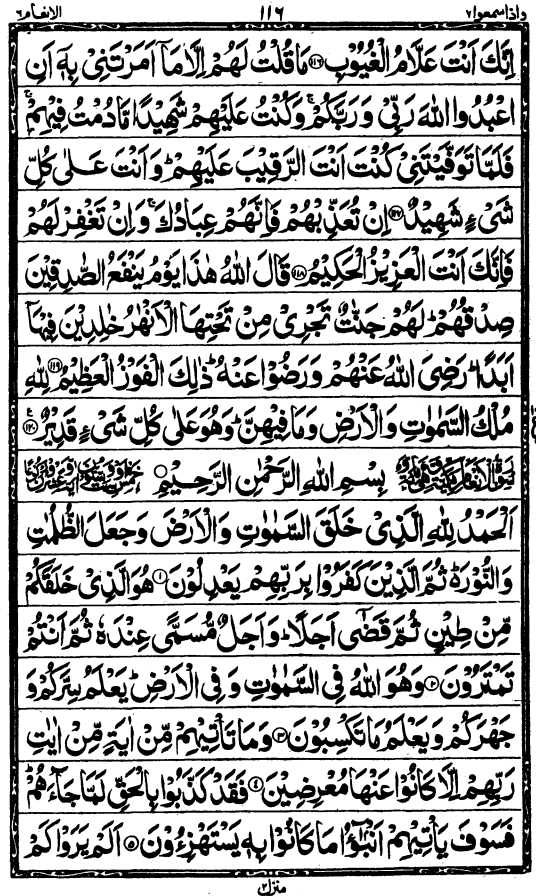 واذاسمعوا۷ ۱۱۶ الانعام۶
اِنَّكَ اَنْتَ عَلَّامُ الْغُيُوْبِ ﴿۱۱۶﴾ مَا قُلْتُ لَهُمْ اِلَّا مَاۤ اَمَرْتَنِيْ بِهٖۤ اَنِ
اعْبُدُوا اللّٰهَ رَبِّيْ وَرَبَّكُمْ ۚ وَكُنْتُ عَلَيْهِمْ شَهِيْدًا مَّا دُمْتُ فِيْهِمْ ۚ
فَلَمَّا تَوَفَّيْتَنِيْ كُنْتَ اَنْتَ الرَّقِيْبَ عَلَيْهِمْ ؕ وَاَنْتَ عَلٰى كُلِّ
شَيْءٍ شَهِيْدٌ ﴿۱۱۷﴾ اِنْ تُعَذِّبْهُمْ فَاِنَّهُمْ عِبَادُكَ ۚ وَاِنْ تَغْفِرْ لَهُمْ
فَاِنَّكَ اَنْتَ الْعَزِيْزُ الْحَكِيْمُ ﴿۱۱۸﴾ قَالَ اللّٰهُ هٰذَا يَوْمُ يَنْفَعُ الصّٰدِقِيْنَ
صِدْقُهُمْ ؕ لَهُمْ جَنّٰتٌ تَجْرِيْ مِنْ تَحْتِهَا الْاَنْهٰرُ خٰلِدِيْنَ فِيْهَاۤ
اَبَدًا ؕ رَضِيَ اللّٰهُ عَنْهُمْ وَرَضُوْا عَنْهُ ؕ ذٰلِكَ الْفَوْزُ الْعَظِيْمُ ﴿۱۱۹﴾ لِلّٰهِ
مُلْكُ السَّمٰوٰتِ وَالْاَرْضِ وَمَا فِيْهِنَّ ؕ وَهُوَ عَلٰى كُلِّ شَيْءٍ قَدِيْرٌ ﴿۱۲۰﴾
بِسْمِ اللّٰهِ الرَّحْمٰنِ الرَّحِيْمِ
اَلْحَمْدُ لِلّٰهِ الَّذِيْ خَلَقَ السَّمٰوٰتِ وَالْاَرْضَ وَجَعَلَ الظُّلُمٰتِ
وَالنُّوْرَ ؕ ثُمَّ الَّذِيْنَ كَفَرُوْا بِرَبِّهِمْ يَعْدِلُوْنَ ﴿۱﴾ هُوَ الَّذِيْ خَلَقَكُمْ
مِّنْ طِيْنٍ ثُمَّ قَضٰۤى اَجَلًا ؕ وَاَجَلٌ مُّسَمًّى عِنْدَهٗ ثُمَّ اَنْتُمْ
تَمْتَرُوْنَ ﴿۲﴾ وَهُوَ اللّٰهُ فِي السَّمٰوٰتِ وَفِي الْاَرْضِ ؕ يَعْلَمُ سِرَّكُمْ وَ
جَهْرَكُمْ وَيَعْلَمُ مَا تَكْسِبُوْنَ ﴿۳﴾ وَمَا تَاْتِيْهِمْ مِّنْ اٰيَةٍ مِّنْ اٰيٰتِ
رَبِّهِمْ اِلَّا كَانُوْا عَنْهَا مُعْرِضِيْنَ ﴿۴﴾ فَقَدْ كَذَّبُوْا بِالْحَقِّ لَمَّا جَآءَهُمْ ؕ
فَسَوْفَ يَاْتِيْهِمْ اَنْۢبٰٓؤُا مَا كَانُوْا بِهٖ يَسْتَهْزِءُوْنَ ﴿۵﴾ اَلَمْ يَرَوْا كَمْ
منزل۲